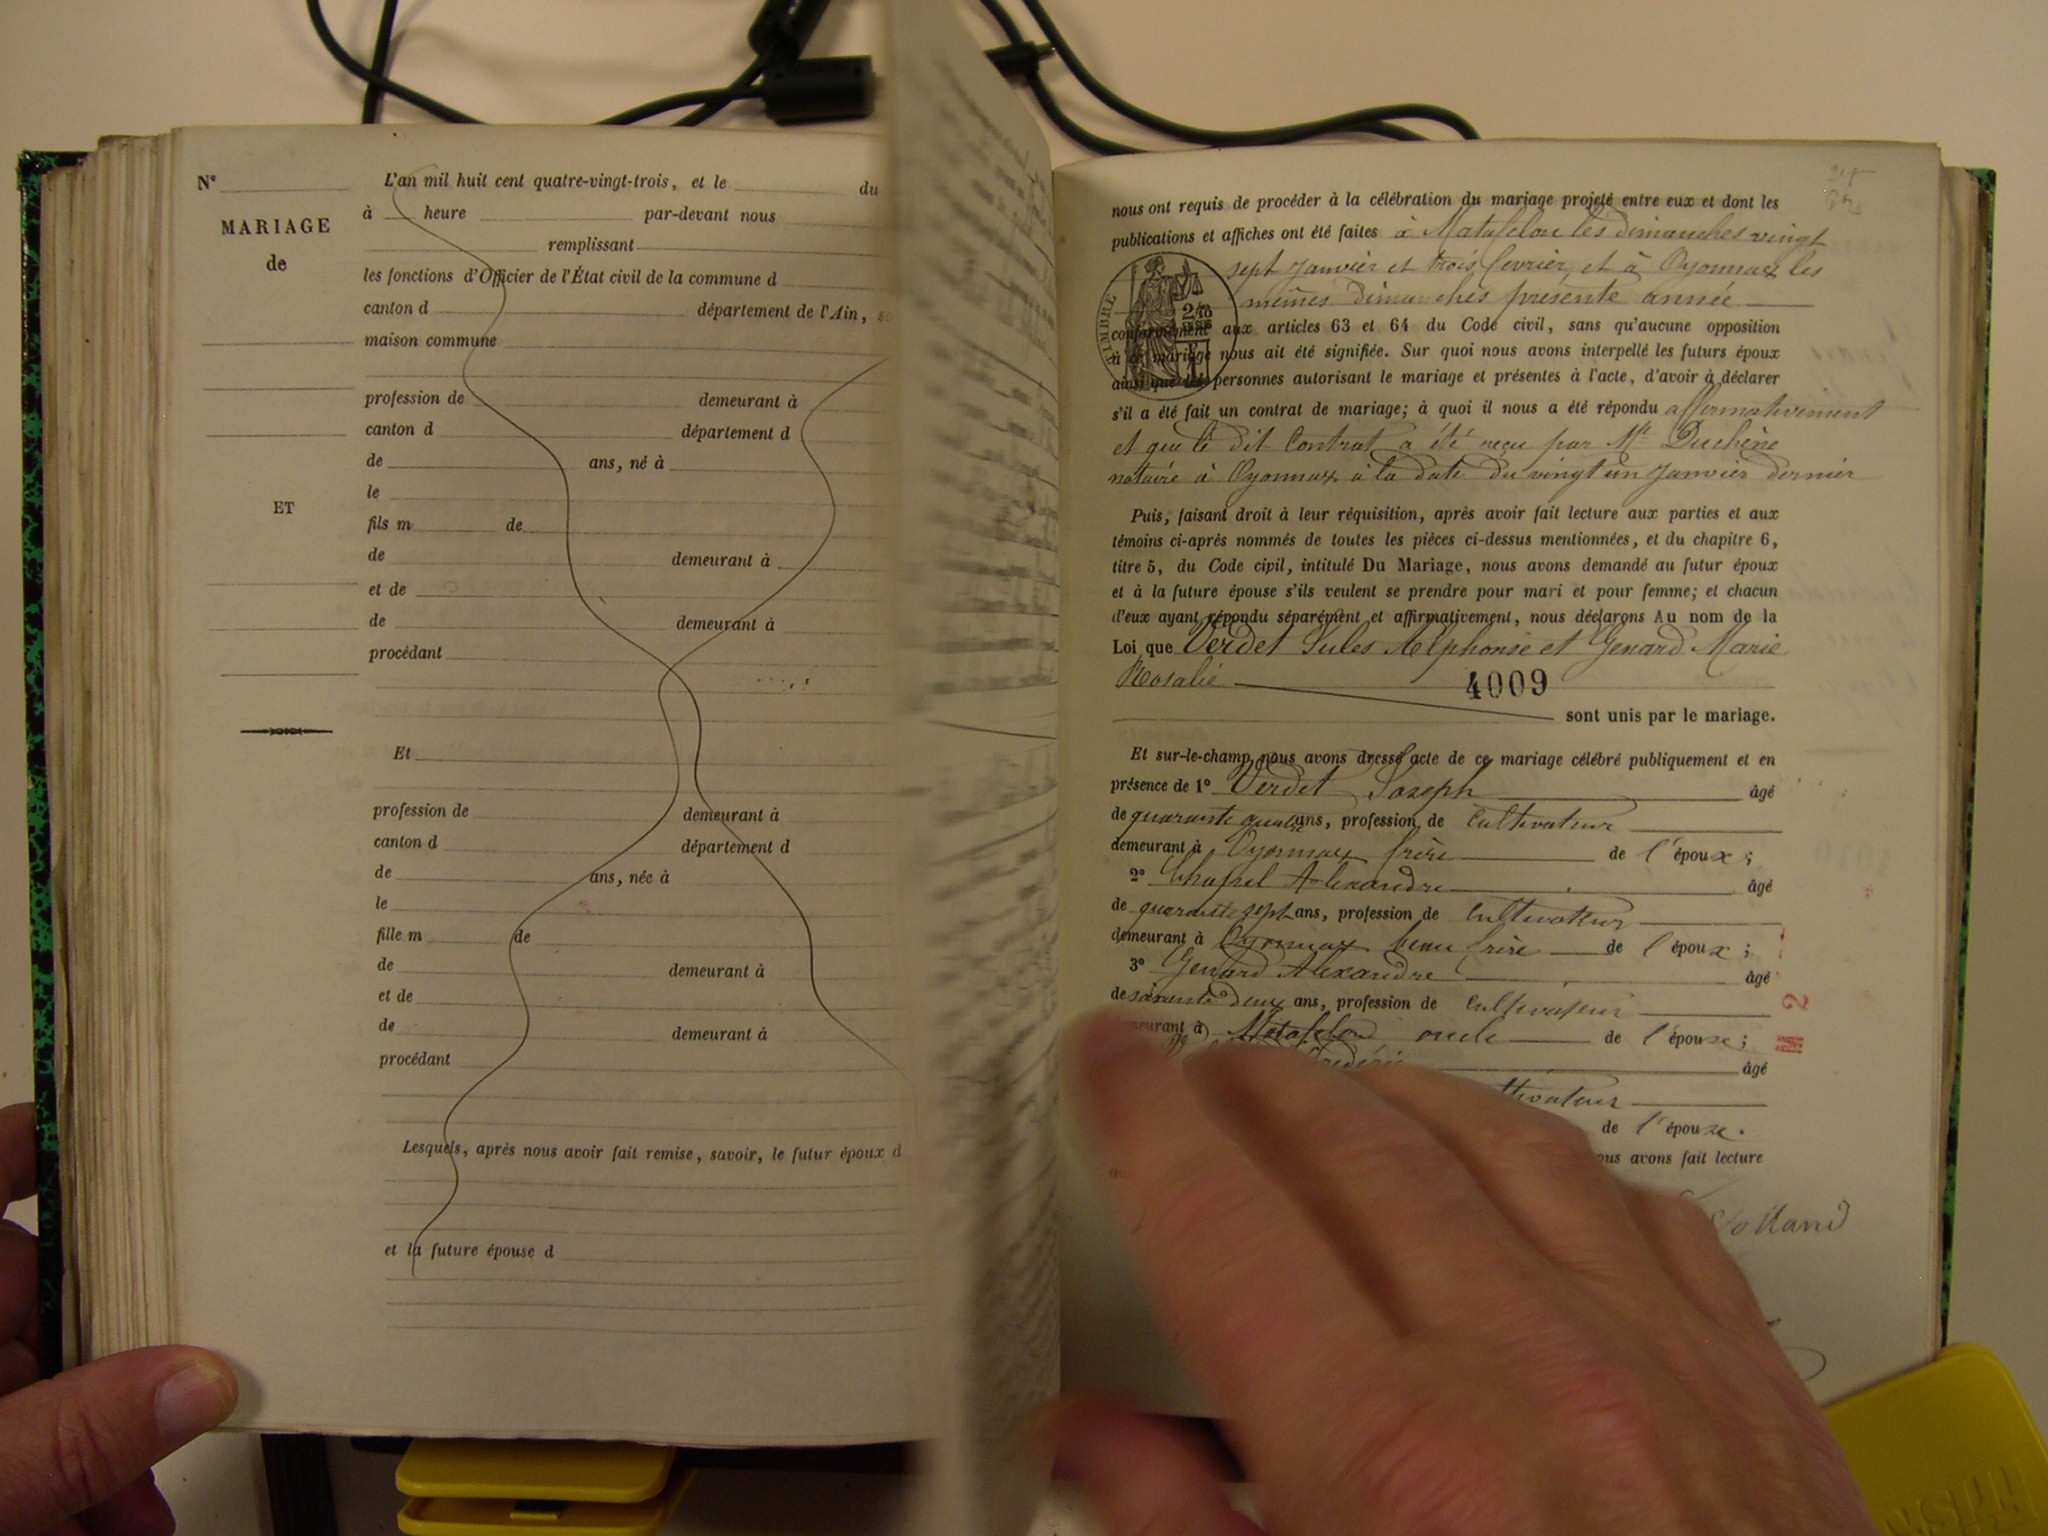 N°
MARIAGE
de
ET
L'an mil huit cent quatre-vingt-trois, et le du
à heure par-devant nous
remplissant
les fonctions d'Officier de l'État civil de la commune d
canton d département de l'Ain,
maison commune
profession de demeurant à
canton d département d
de ans, né à
le
fils m de
de demeurant à
et de
de demeurant à
procédant
Et
profession de demeurant à
canton d département d
de ans, née à
le
fille m de
de demeurant à
et de
de demeurant à
procédant
Lesquels, après nous avoir fait remise, savoir, le futur époux d
et la future épouse d
nous ont requis de procéder à la célébration du mariage projeté entre eux et dont les
publications et affiches ont été faites à Matafelon les dimanches vingt
sept Janvier et trois fevrier, et à Oyonnax les
mêmes dimanches présente année
TIMBRE
conformément aux articles 63 et 64 du Code civil, sans qu'aucune opposition
à ce mariage nous ait été signifiée. Sur quoi nous avons interpellé les futurs époux
ainsi que les personnes autorisant le mariage et présentes à l'acte, d'avoir à déclarer
s'il a été fait un contrat de mariage; à quoi il nous a été répondu affirmativement
et que le dit Contrat a été reçu par Me Duchêne
notaire à Oyonnax à la date du vingt un Janvier dernier
Puis, faisant droit à leur réquisition, après avoir fait lecture aux parties et aux
témoins ci-après nommés de toutes les pièces ci-dessus mentionnées, et du chapitre 6,
titre 5, du Code cipil, intitulé Du Mariage, nous avons demandé au futur époux
et à la future épouse s'ils veulent se prendre pour mari et pour femme; et chacun
d'eux ayant répondu séparément et affirmativement, nous déclarons Au nom de la
Loi que Verdet Jules Alphonse et Genard Marie
Rosalie 4009
sont unis par le mariage.
Et sur-le-champ nous avons dressé acte de ce mariage célébré publiquement et en
présence de 1° Verdet Joseph âgé
de quarante quatre ans, profession de Cultivateur
demeurant à Oyonnax frère de l'époux;
2° Chapel Alexandre âgé
de quarante sept ans, profession de Cultivateur
demeurant à Oyonnax beau frère de l'époux;
3° Genard Alexandre âgé
de soixante deux ans, profession de Cultivateur
demeurant à Matafelon oncle de l'épouse;
âgé
de l'épouse.
nous avons fait lecture